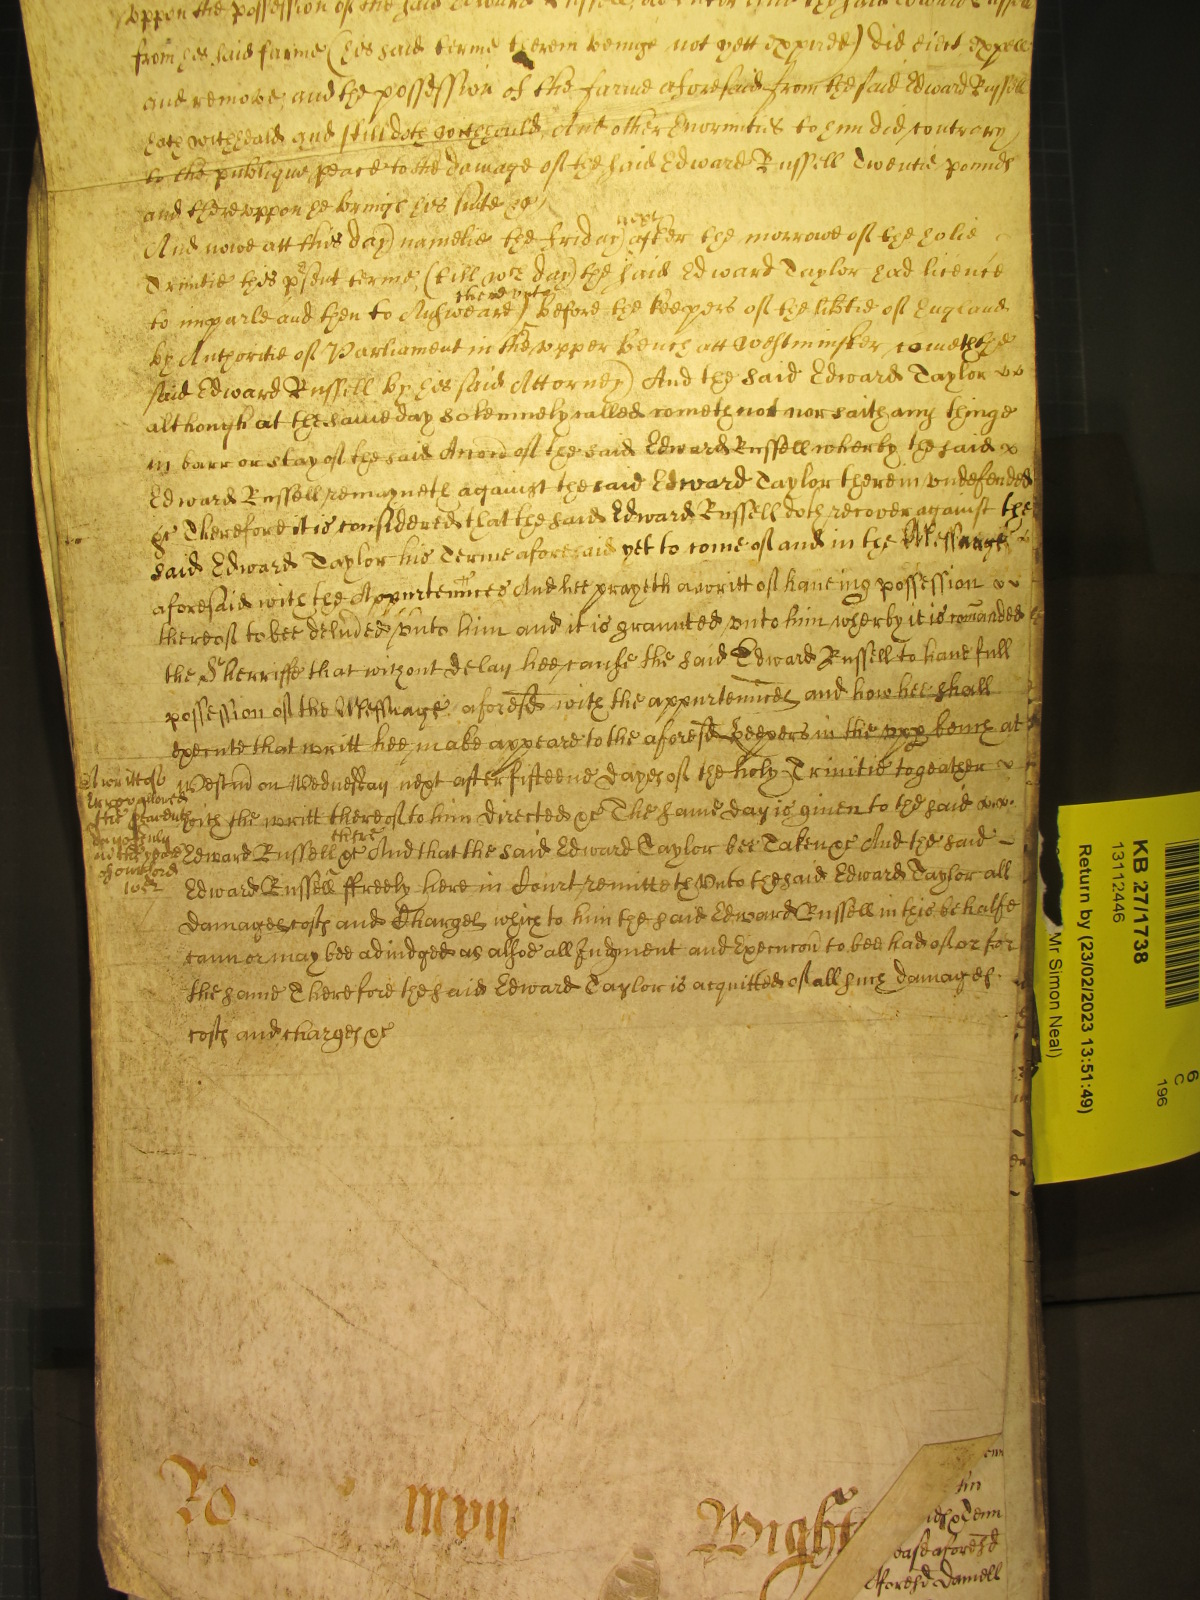 uppon the possession of the said Edward Russell did enter and the said Edward Russell
from his said farme (his said terme therein beinge not yett expired) did eiect expell
and remove, and the possession of the farme aforesaid from the said Edward Russell
hath withheald and still doth withhould, And other Enormities to him did, contrary
to the publique peace to the damage of the said Edward Russell Twentie pounds
and thereuppon he brings his suite &c
And nowe att this day) namelie the friday next after the morrowe of the holie
Trinitie this p'sent terme, (till wch day) the said Edward Taylor had licence
to imparle and then to Answeare) thereunto before the keepers of the lib'tie of England
by Authoritie of Parliament in the upper bench att Westminster, cometh the
said Edward Russell by his said Attorney) And the said Edward Taylor
although at the same day solemnely called cometh not nor saith any thinge
in barr or stay of the said Accon of the said Edward Russell wherby the said
Edward Russell remayneth against the said Edward Taylor therein undefended
&c Therefore it is considered that the said Edward Russell doth recover against the
said Edward Taylor his Terme aforesaid yet to come of and in the Messuage
aforesaid with the Appurtennces And hee prayeth a writt of haueing possession
thereof to bee deliu'ed unto him and it is graunted unto him, wherby it is comanded
the Sherriffe that without delay hee cause the said Edward Russell to haue full
possession of the Messuage aforesd with the appurtennces and how hee shall
execute that writt hee make appeare to the aforesd keepers in the upp bench at
Westm on Wednesday next after fifteene dayes of the holy Trinitie togeather
with the writt thereof to him directed &c The same day is giuen to the said
Edward Russell there &c And that the said Edward Taylor bee Taken &c And the said
Edward Russell ffreely here in Court remitteth Unto the said Edward Taylor all
damages costs and Charges which to him the said Edward Russell in this behalfe
cann or may bee adiudged as alsoe all Judgment and Execucon to bee had of or for
the same Therefore the said Edward Taylor is acquitted of all such damages
costs and charges &c
A writt of
Error allowed
the
in the yeare
of our Lord
1652
Ro
Wight
tm
ease aforesd
aforesd Damell
KB 27/1738
13112446
Return by (23/02/2023 13:51:49)
Mr Simon Neal)
6
C
196